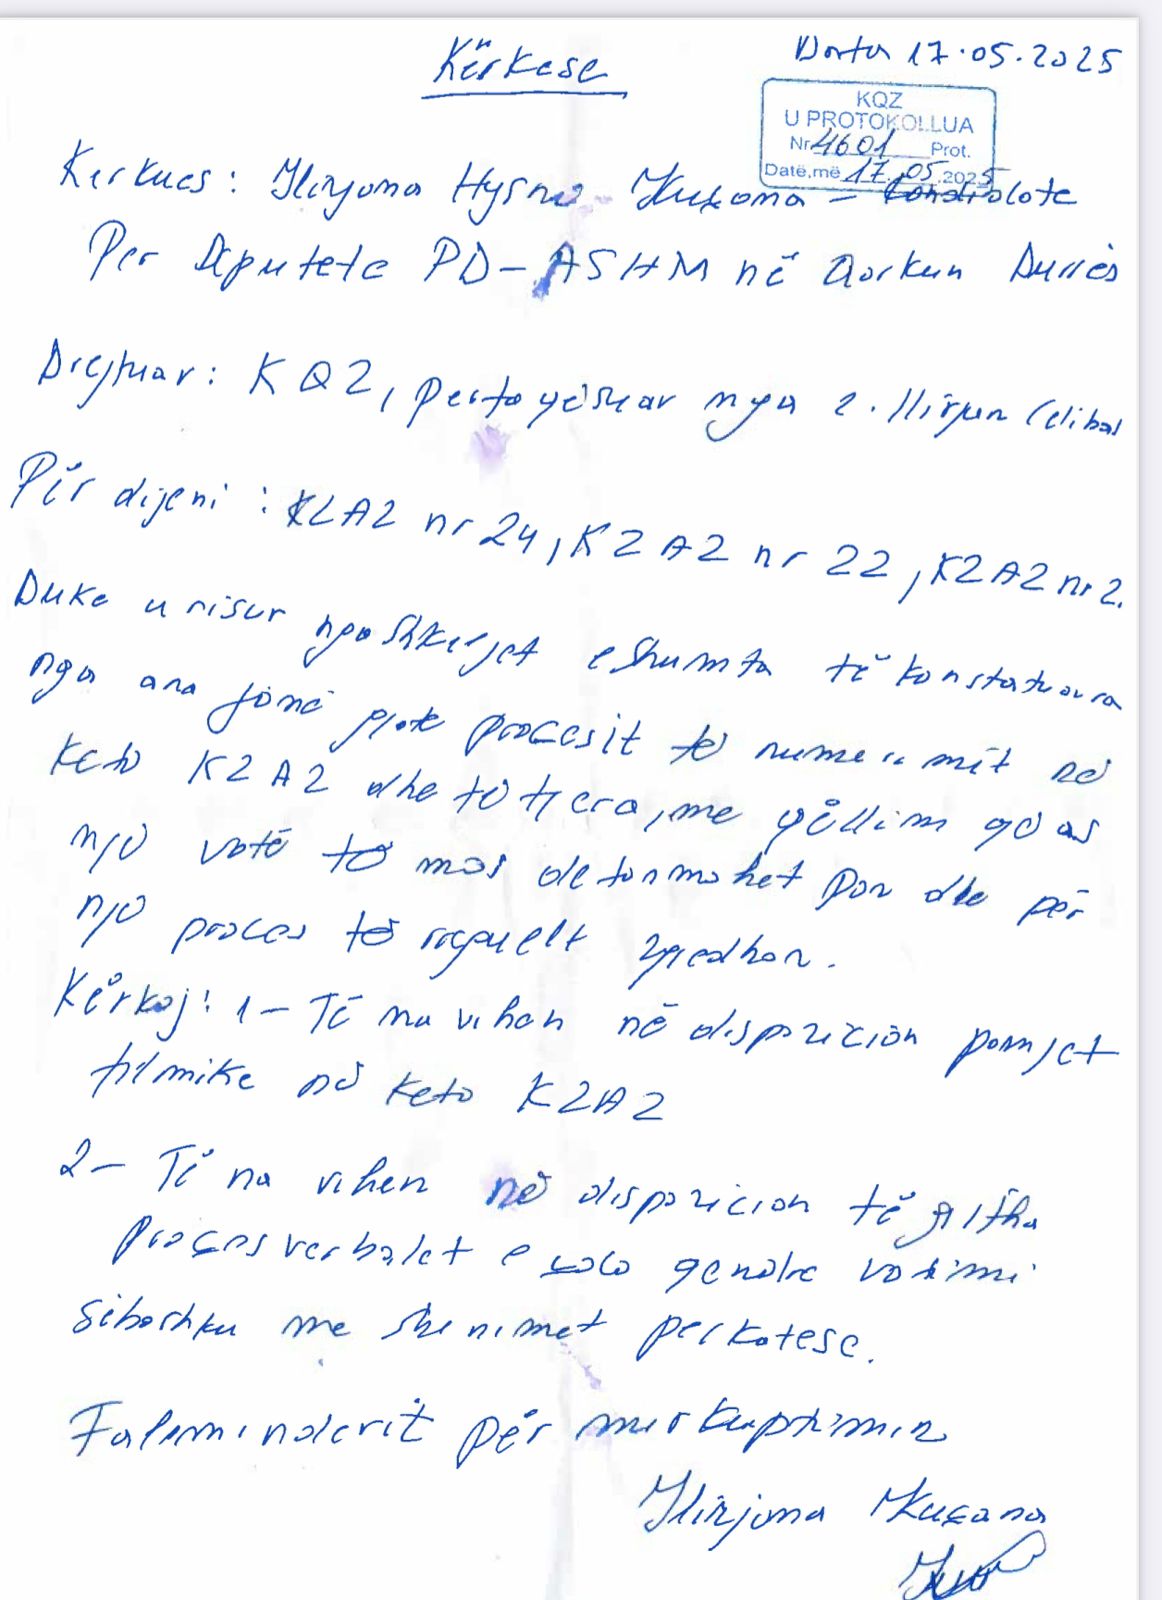 Kërkese
Data 17.05.2025
KQZ
U PROTOKOLLUA
Nr 4601 Prot.
Datë,më 17.05.2025
Kerkues: Ilirjana Hysna - Kuçana - Kandidate
Per Deputete PD-ASHM në Qarkun Durrës
Drejtuar: KQZ, perfaqësuar nga z. Ilirjan Celibashi
Për dijeni: KZAZ nr 24, KZAZ nr 22, KZAZ nr 2.
Duke u nisur nga shkeljet e shumta të konstatuara
nga ana jonë gjate procesit të numerimit në
keto KZAZ dhe të tjera, me qëllim që as
një votë të mos deformohet por dhe për
një proces të rregullt zgjedhor.
Kërkoj: 1- Të na vihen në dispozicion pamjet
filmike në keto KZAZ
2- Të na vihen në dispozicion të gjitha
proçesverbalet e çdo qendre votimi
sëbashku me shenimet perkatese.
Faleminderit për mirkuptimin
Ilirjana Kuçana